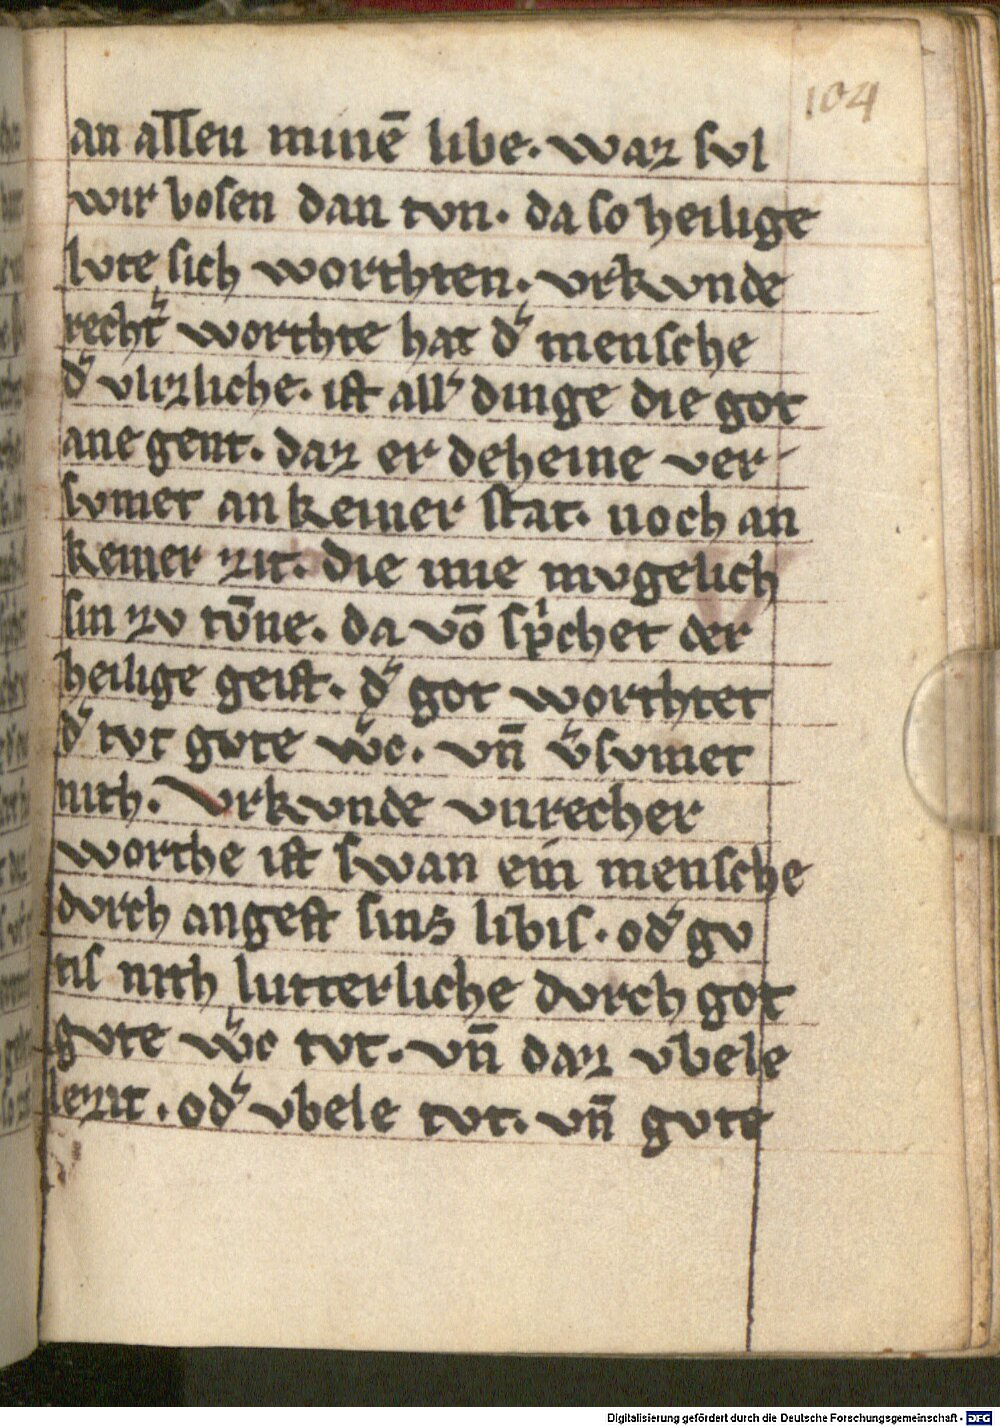 104
an allen minē libe. waz svl
wir bosen dan tvn. da so heilige
lvte sich worthten. vrkvnde
recht᷑ worthte hat d᷑ mensche
d᷑ vlizliche. ist all᷑ dinge die got
ane gent. daz er deheine ver-
svmet an keiner stat. noch an
keiner zit. die ime mvgelich
sin zv tv̄ne. da vō spͥchet der
heilige geist. d᷑ got worthtet
d᷑ tvt gvte w᷑c. vn̄ v᷑svmet
nith. Vrkvnde vnrecher
worthe ist swan ein mensche
dvrch angest sins libis. od᷑ gv
tis nith lutterliche dvrch got
gvte w᷑c tvt. vn̄ daz vbele
lezit. od᷑ vbele tvt. vn̄ gvte
Digitalisierung gefördert durch die Deutsche Forschungsgemeinschaft - DFG